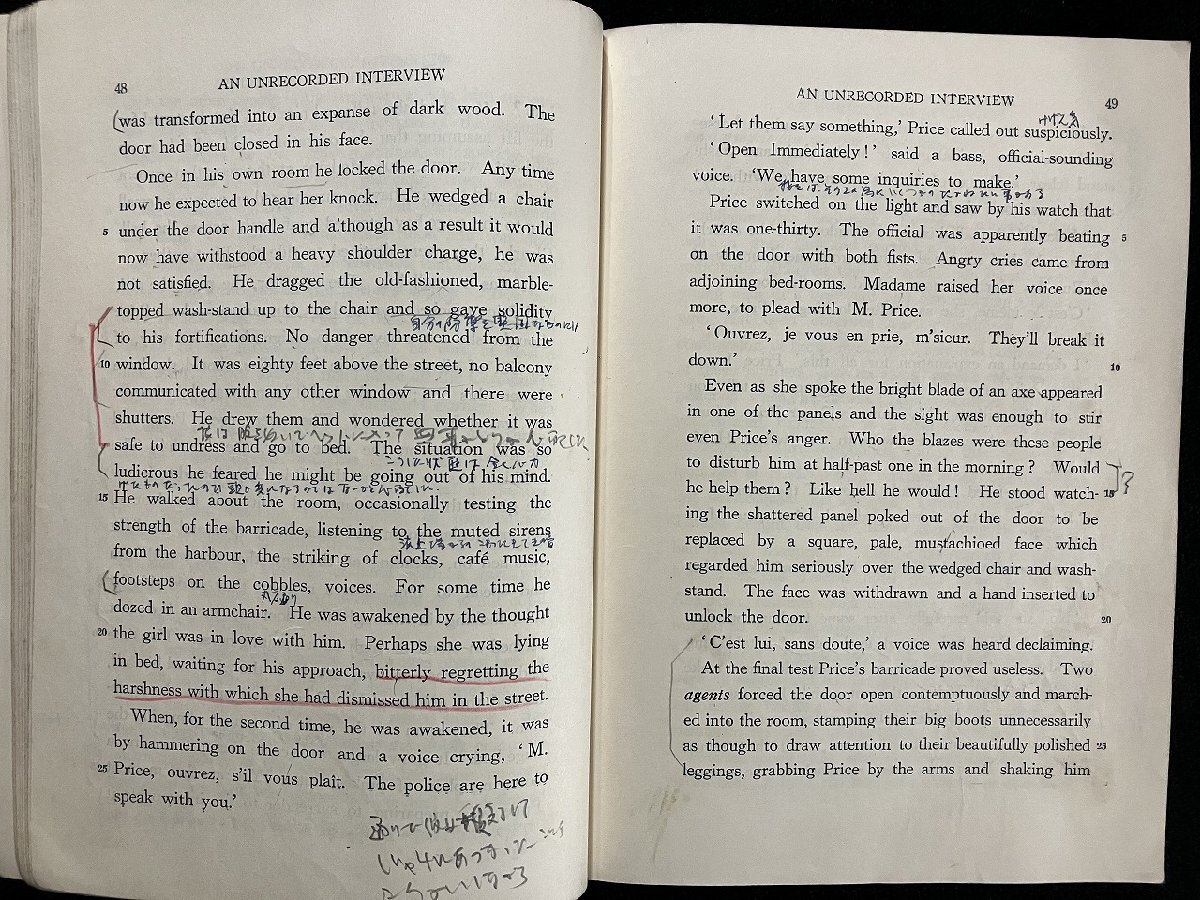 48
AN UNRECORDED INTERVIEW
was transformed into an expanse of dark wood. The
door had been closed in his face.
Once in his own room he locked the door. Any time
now he expected to hear her knock. He wedged a chair
5 under the door handle and although as a result it would
now have withstood a heavy shoulder charge, he was
not satisfied. He dragged the old-fashioned, marble-
topped wash-stand up to the chair and so gave solidity
to his fortifications. No danger threatened from the
10 window. It was eighty feet above the street, no balcony
communicated with any other window and there were
shutters. He drew them and wondered whether it was
safe to undress and go to bed. The situation was so
ludicrous he feared he might be going out of his mind.
15 He walked about the room, occasionally testing the
strength of the barricade, listening to the muted sirens
from the harbour, the striking of clocks, café music,
footsteps on the cobbles, voices. For some time he
dozed in an armchair. He was awakened by the thought
20 the girl was in love with him. Perhaps she was lying
in bed, waiting for his approach, bitterly regretting the
harshness with which she had dismissed him in the street.
When, for the second time, he was awakened, it was
by hammering on the door and a voice crying, 'M.
25 Price, ouvrez, s'il vous plaît. The police are here to
speak with you.'
AN UNRECORDED INTERVIEW
49
'Let them say something,' Price called out suspiciously.
'Open Immediately!' said a bass, official-sounding
voice. 'We have some inquiries to make.'
Price switched on the light and saw by his watch that
it was one-thirty. The official was apparently beating 5
on the door with both fists. Angry cries came from
adjoining bed-rooms. Madame raised her voice once
more, to plead with M. Price.
'Ouvrez, je vous en prie, m'sieur. They'll break it
down.' 10
Even as she spoke the bright blade of an axe appeared
in one of the panels and the sight was enough to stir
even Price's anger. Who the blazes were these people
to disturb him at half-past one in the morning? Would
he help them? Like hell he would! He stood watch- 15
ing the shattered panel poked out of the door to be
replaced by a square, pale, mustachioed face which
regarded him seriously over the wedged chair and wash-
stand. The face was withdrawn and a hand inserted to
unlock the door. 20
'C'est lui, sans doute,' a voice was heard declaiming.
At the final test Price's barricade proved useless. Two
agents forced the door open contemptuously and march-
ed into the room, stamping their big boots unnecessarily
as though to draw attention to their beautifully polished 25
leggings, grabbing Price by the arms and shaking him